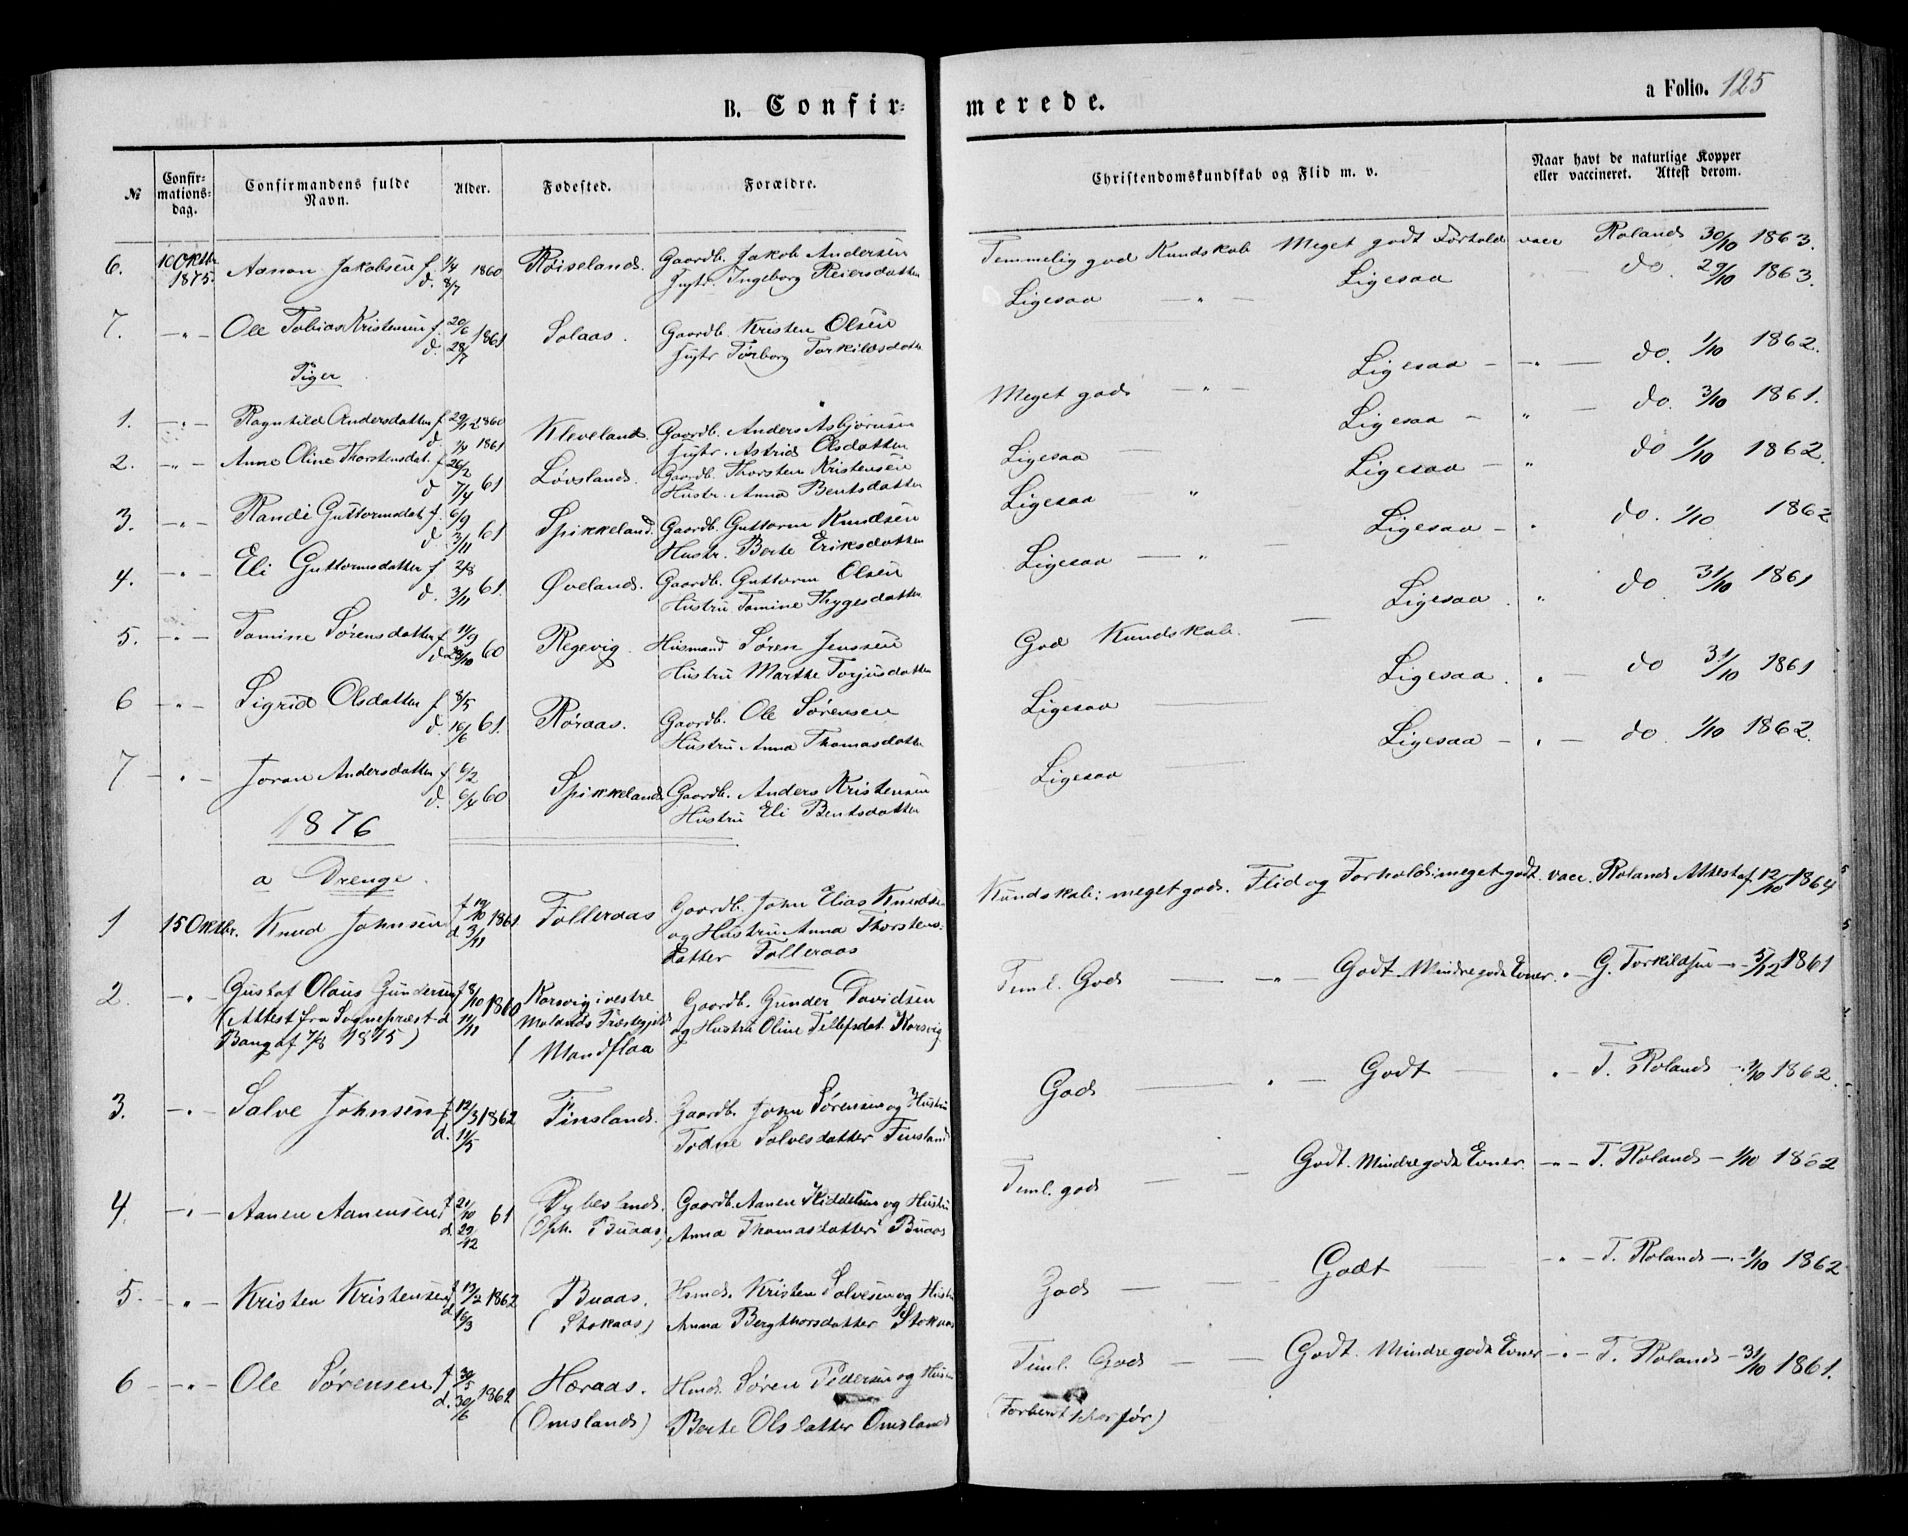 B. Confir- merede.
a Folio. 125
№ Confir-mations-dag. Confirmandens fulde Navn. Alder. Fødested. Forældre. Christendomskundskab og Flid m. v. Naar havt de naturlige Kopper eller vaccineret. Attest derom.
6. 10 Oktbr. 1875. Aanon Jakobsen f. 1/4 1860 Røiseland. Gaardb. Jakob Andersen Temmelig god Kundskab Meget godt Forhold vacc Roland 30/10 1863.
d. 8/7 Ingeborg Reiersdatter
7. -"- Ole Tobias Kristensen f. 20/6 1861 Solaas. Gaardb. Kristen Olsen Ligesaa -"- Ligesaa do. 29/10 1863.
d. 28/7 Torborg Torkildsdatter
Piger
1. -"- Ragnhild Andersdatter f. 29/12 1860 Kleveland. Gaardb. Anders Asbjørnsen Meget god -"- Ligesaa -"- do. 1/10 1862.
d. 1/4 1861 Astrid Olsdatter
2. -"- Anne Oline Thorstensdat. f. 26/2 Løvland. Gaardb. Thorsten Kristensen Ligesaa Ligesaa - " - do. 3/10 1861.
d. 7/4 61 Hustr. Anna Bentsdatter
3. -"- Randi Guttormsdat. f. 6/9 Spikkeland. Gaardb. Guttorm Knudsen Ligesaa " Ligesaa - " do 1/10 1862.
d. 3/11 61 Hustr. Berte Eriksdatter
4. -"- Eli Guttormsdatter f. 2/8 Øveland. Gaardb. Guttorm Olsen Ligesaa -"- Ligesaa - " do. 1/10 1862
d. 3/11 61. Hustru Tomine Thygesdatter
5. -"- Tomine Sørensdatter f. 11/9 Regevig. Husmand Søren Jenssen God Kundskab. - Ligesaa. " do. 31/10 1861
d. 28/10 60 Hustru Marthe Torjusdatter
6 -"- Sigrid Olsdatter f. 8/5 Røraas. Gaardb. Ole Sørensen Ligesaa Ligesaa. " - do 31/10 1861
d. 16/6 61. Hustru Anna Thomasdatter
7 -"- Joran Andersdatter f. 6/2 Spikkeland Gaardb. Anders Kristensen Ligesaa Ligesaa - " - do. 1/10 1862.
d. 6/4 60 Hustru Eli Bentsdatter
1876
a Drenge.
1 15 Oktbr. Knud Johnsen f 19/10 1861 Folleraas Gaardb. John Elias Knuds Kundskab: meget god. Flid og Forhold: meget godt. vacc. Rolands Attest af 12/10 1864
d. 3/11 og Hustru Anna Thorstens-
datter Folleraas
2. -"- Gustaf Olaus Gundersen f 8/10 1860 Korsvig i vestre Gaardb. Gunder Davidsen Teml. God -"- Godt. Mindre gode Evner. " G. Torkildsen - 5/12 1861
(Attest fra Sognepræst d 11/11 Molands Præstegjeld og Hustru Oline Tellefsdat. Korsvig
Bang af 7/8 1875) (Mandflaa
3. -"- Salve Johnsen f 12/3 1862 Finsland. Gaardb. John Sørensen og Hustru God " - Godt " - T. Roland - 1/10 1862.
d. 11/5 Todne Salvesdatter Finsland
4. -"- Aanen Aanensen f 21/10 61 Gaardb. Aanen og Hustru Teml. god - Godt. Mindre gode Evner. -"- T. Roland - 1/10 1862
d. 29/12 (Oph. Buaas) Anna Thomasdatter Buaas
5. -"- Kristen Kristensen f 19/2 1862 Buaas. Hmd. Kristen Salvesen og Hustr God - Godt -"- T. Roland -"- 1/10 1862
d. 16/3 (Stokaas) Anna Bergthorsdatter Stokaas
6 -"- Ole Sørensen f 30/5 1862 Høraas. Hmd. Søren Pedersen og Hustru Teml. God - - Godt. Mindre gode Evner -"- T. Roland - 31/10 1861.
d. 30/6 (Omsland) Berte Olsdatter Omsland